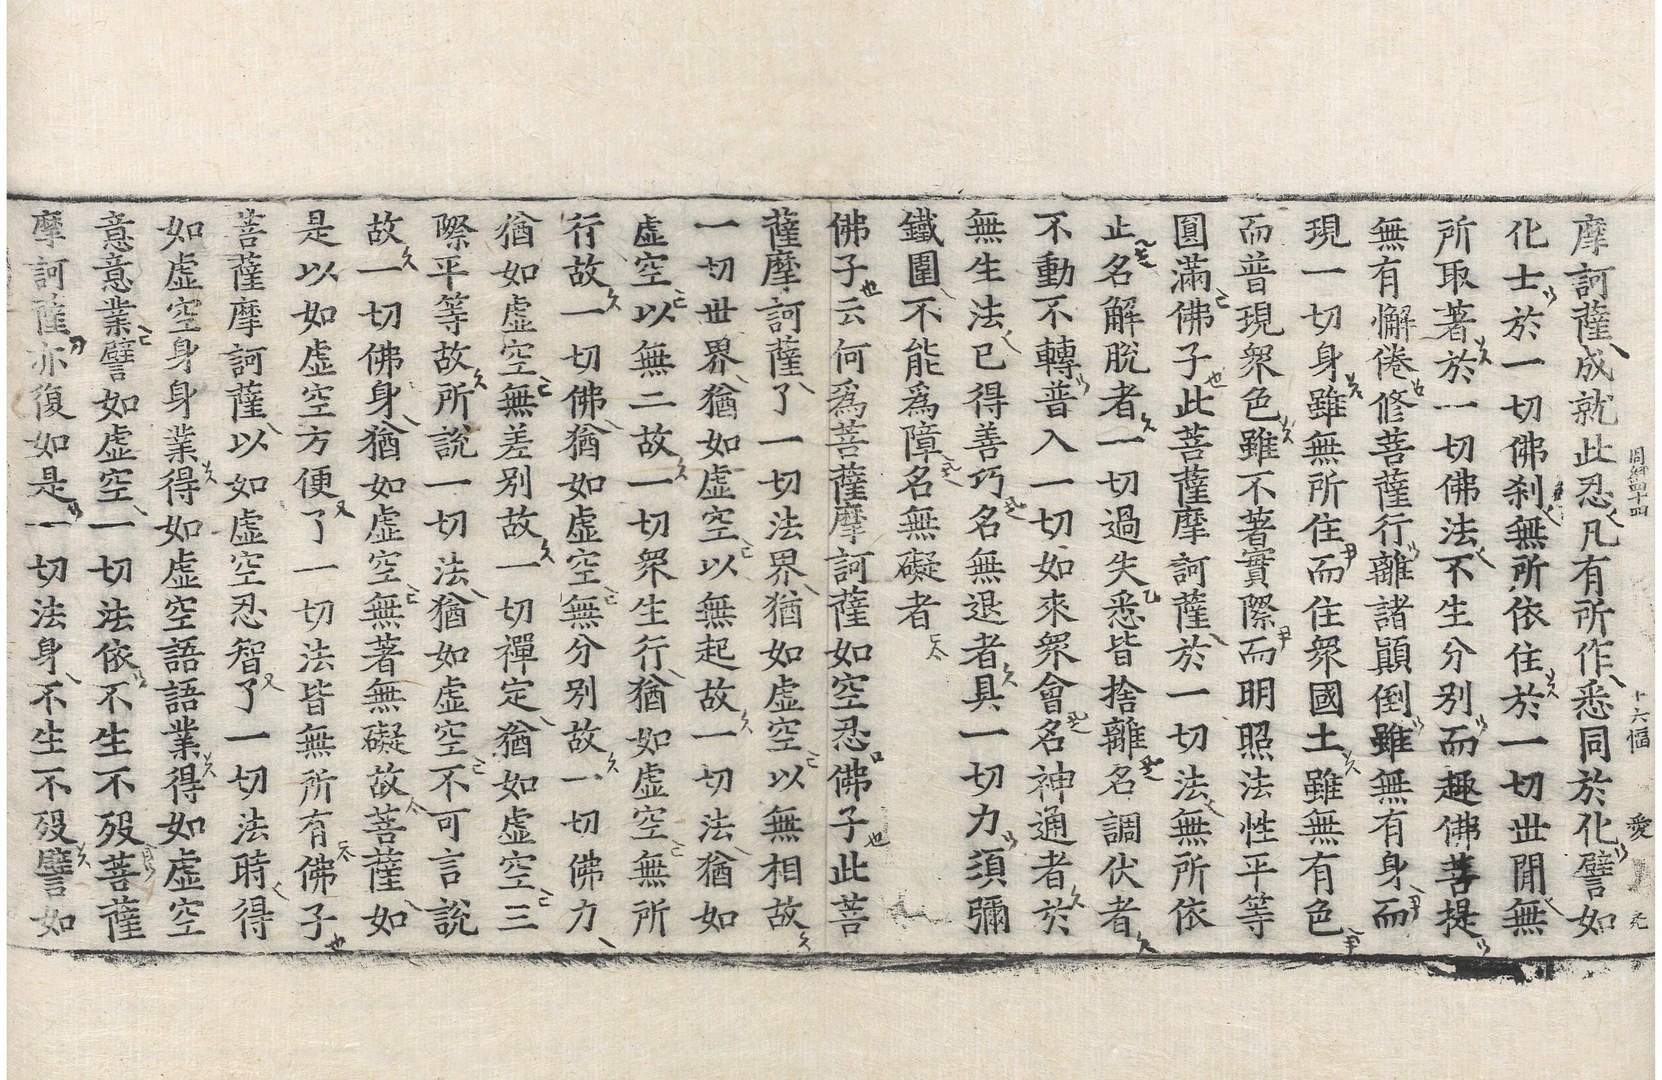 周經四十四　十六幅　愛
摩訶薩成就此忍凡有所作悉同於化譬如
化士於一切佛刹無所依住於一切世閒無
所取著於一切佛法不生分別而趣佛菩提
無有懈倦修菩薩行離諸顚倒雖無有身而
現一切身雖無所住而住衆國土雖無有色
而普現衆色雖不著實際而明照法性平等
圓滿佛子此菩薩摩訶薩於一切法無所依
止名解脫者一切過失悉皆捨離名調伏者
不動不轉普入一切如來衆會名神通者於
無生法已得善巧名無退者具一切力須彌
鐵圍不能爲障名無礙者
佛子云何爲菩薩摩訶薩如空忍佛子此菩
薩摩訶薩了一切法界猶如虛空以無相故
一切世界猶如虛空以無起故一切法猶如
虛空以無二故一切衆生行猶如虛空無所
行故一切佛猶如虛空無分別故一切佛力
猶如虛空無差別故一切禪定猶如虛空三
際平等故所說一切法猶如虛空不可言說
故一切佛身猶如虛空無著無礙故菩薩如
是以如虛空方便了一切法皆無所有佛子
菩薩摩訶薩以如虛空忍智了一切法時得
如虛空身身業得如虛空語語業得如虛空
意意業譬如虛空一切法依不生不歿菩薩
摩訶薩亦復如是一切法身不生不歿譬如